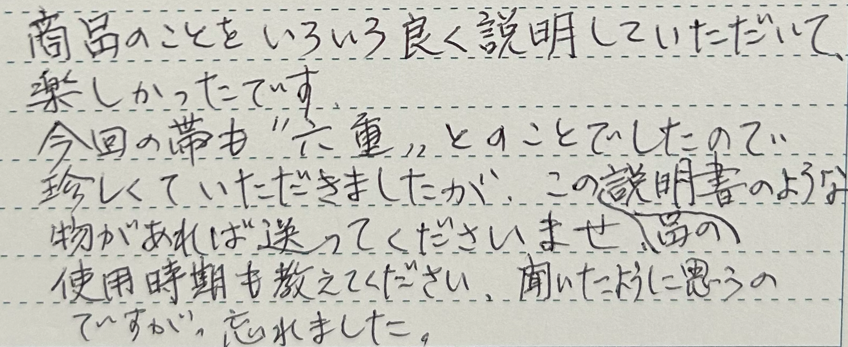 商品のことをいろいろ良く説明していただいて、
楽しかったです。
今回の帯も〝六重〟とのことでしたので
珍しくていただきましたが、この説明書のような
物があれば送ってくださいませ、品の
使用時期も教えてください、聞いたように思うの
ですが、忘れました。